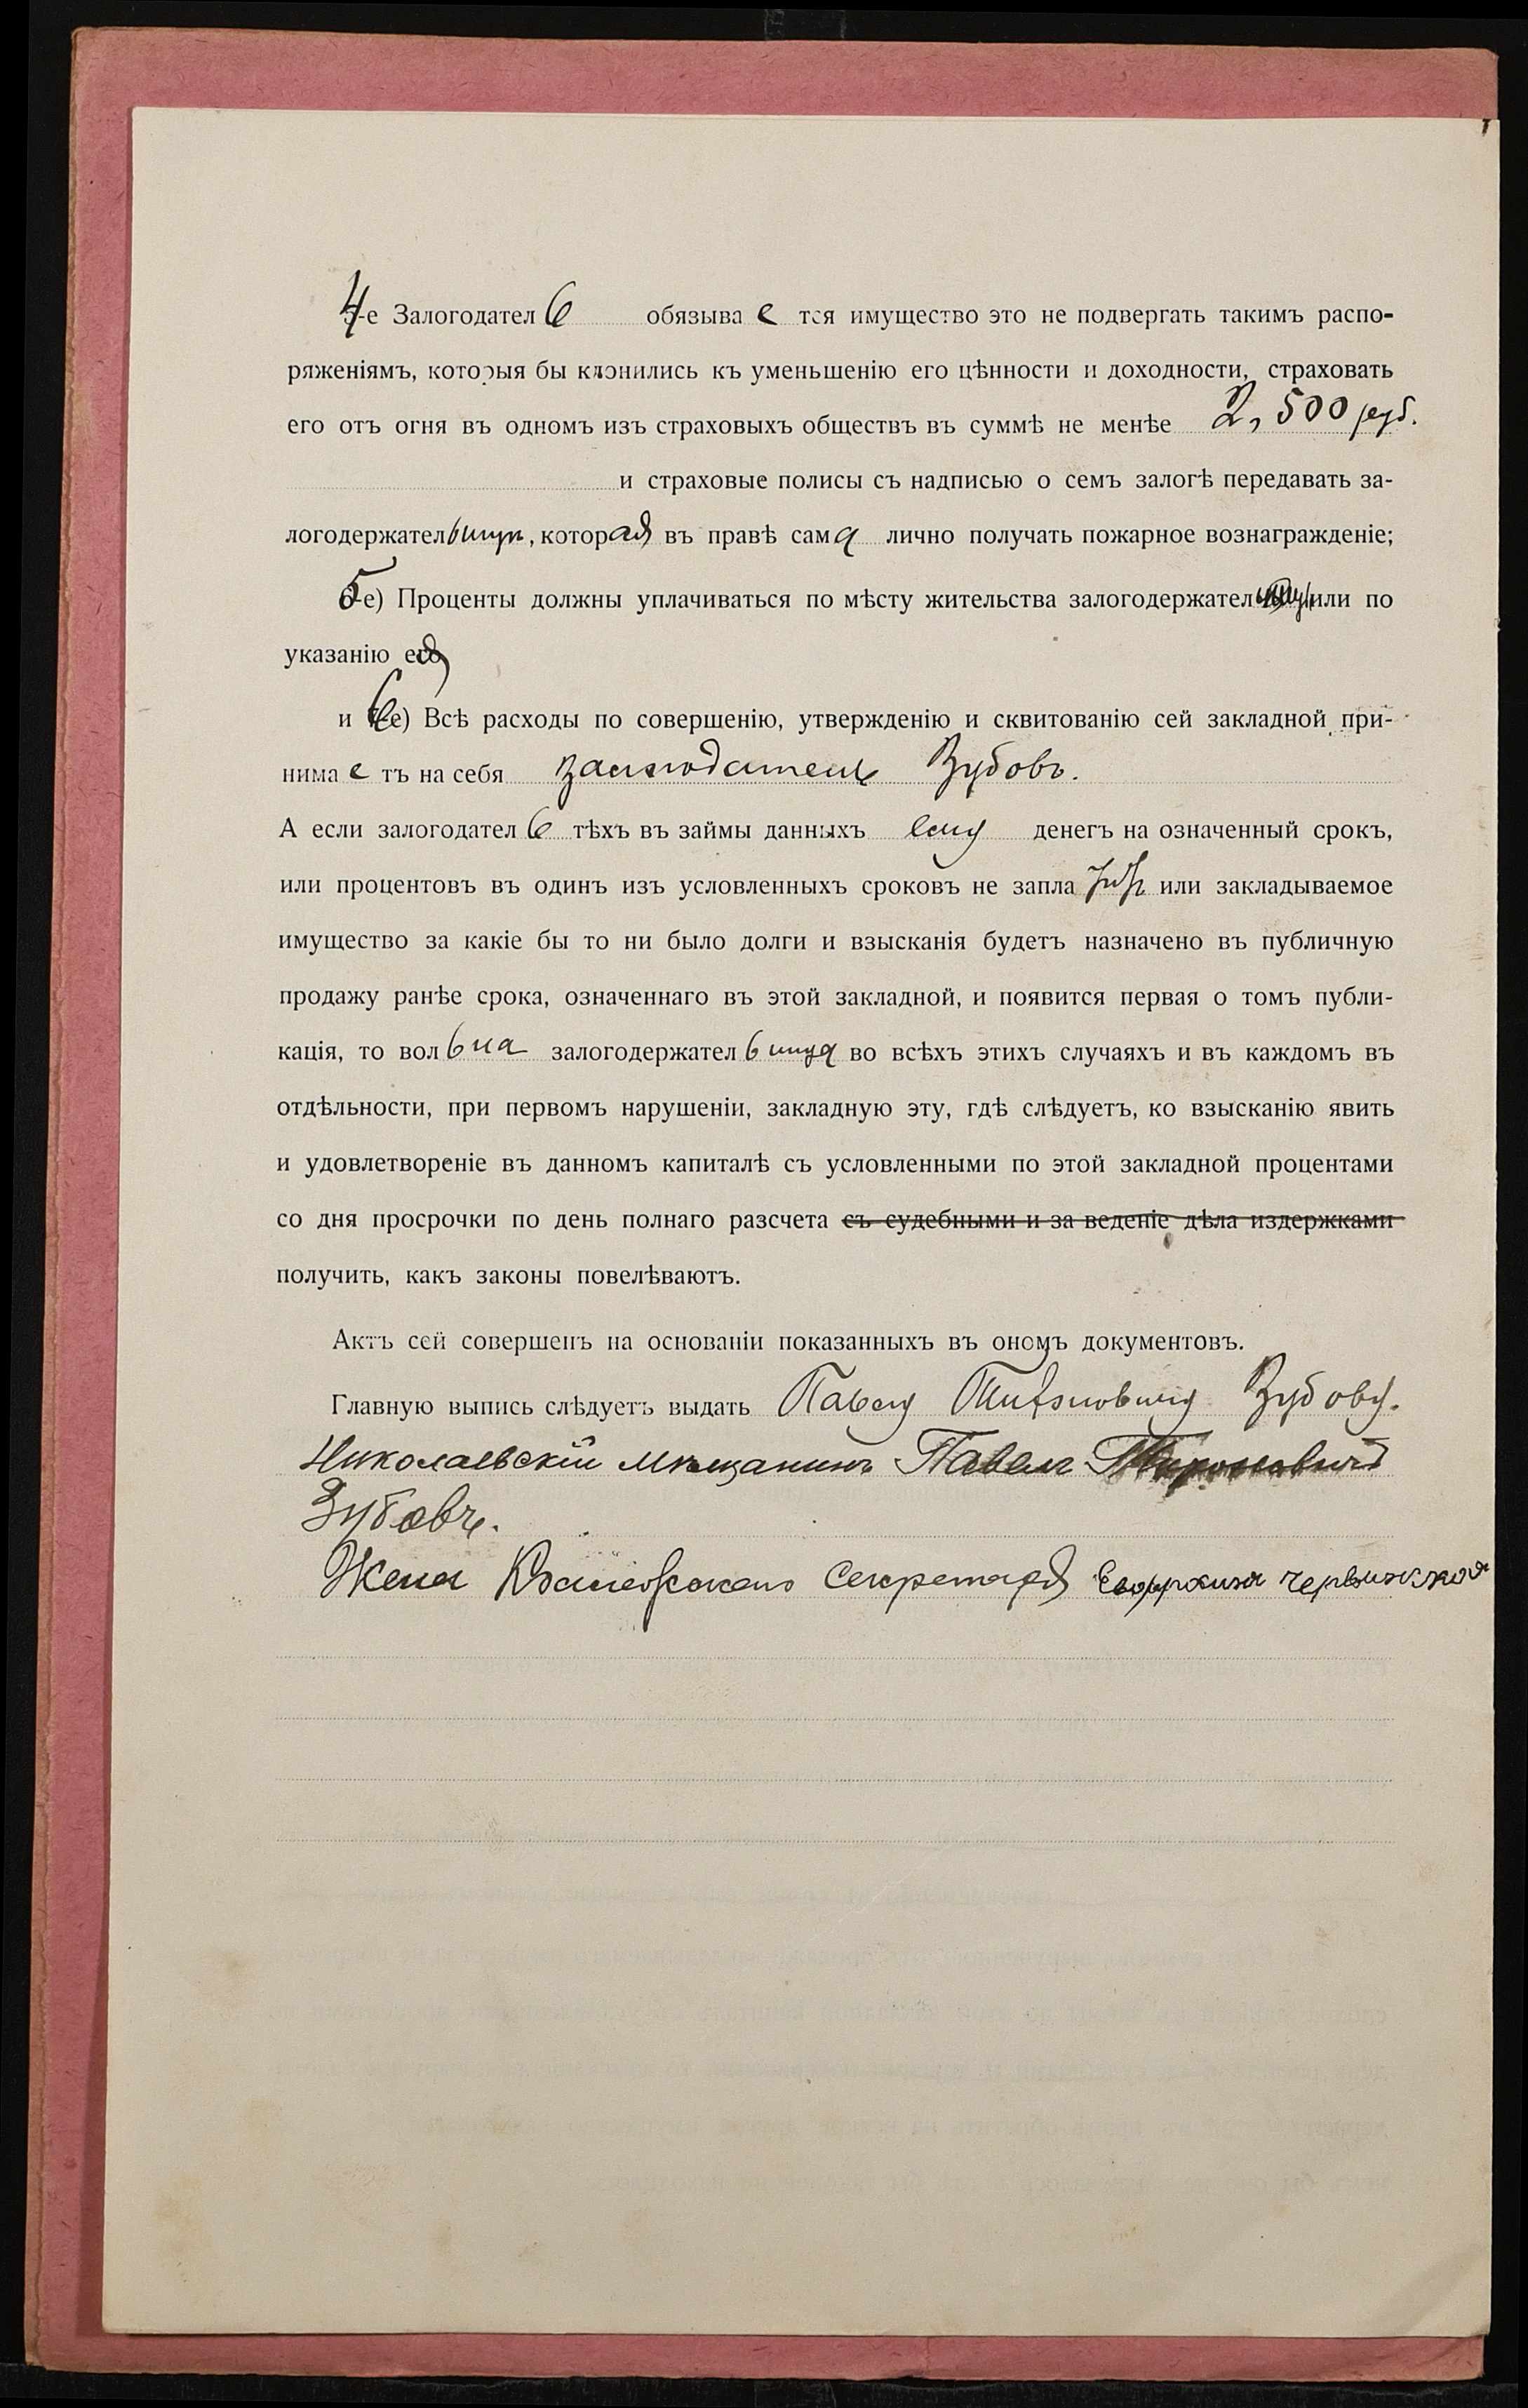 4-е Залогодатель обязывается имущество это не подвергать такимъ распо-
ряженіямъ, которыя бы клонились къ уменьшенію его цѣнности и доходности, страховать
его отъ огня въ одномъ изъ страховыхъ обществъ въ суммѣ не менѣе 2,500 руб.
и страховые полисы съ надписью о семъ залогѣ передавать за-
логодержательницѣ, которая въ правѣ сама лично получать пожарное вознагражденіе;
5-е) Проценты должны уплачиваться по мѣсту жительства залогодержательницы или по
указанію ея
и 6-е) Всѣ расходы по совершенію, утвержденію и сквитованію сей закладной при-
нимаетъ на себя залогодатель Зубовъ.
А если залогодатель тѣхъ въ займы данныхъ ему денегъ на означенный срокъ,
или процентовъ въ одинъ изъ условленныхъ сроковъ не заплатитъ или закладываемое
имущество за какіе бы то ни было долги и взысканія будетъ назначено въ публичную
продажу ранѣе срока, означеннаго въ этой закладной, и появится первая о томъ публи-
кація, то вольна залогодержательница во всѣхъ этихъ случаяхъ и въ каждомъ въ
отдѣльности, при первомъ нарушеніи, закладную эту, гдѣ слѣдуетъ, ко взысканію явить
и удовлетвореніе въ данномъ капиталѣ съ условленными по этой закладной процентами
со дня просрочки по день полнаго разсчета съ судебными и за веденіе дѣла издержками
получить, какъ законы повелѣваютъ.
Актъ сей совершенъ на основаніи показанныхъ въ ономъ документовъ.
Главную выпись слѣдуетъ выдать Павлу Тихоновичу Зубову.
Николаевскій мѣщанинъ Павелъ Тихоновичъ
Зубовъ.
Жена Коллежскаго Секретаря Евфросинія